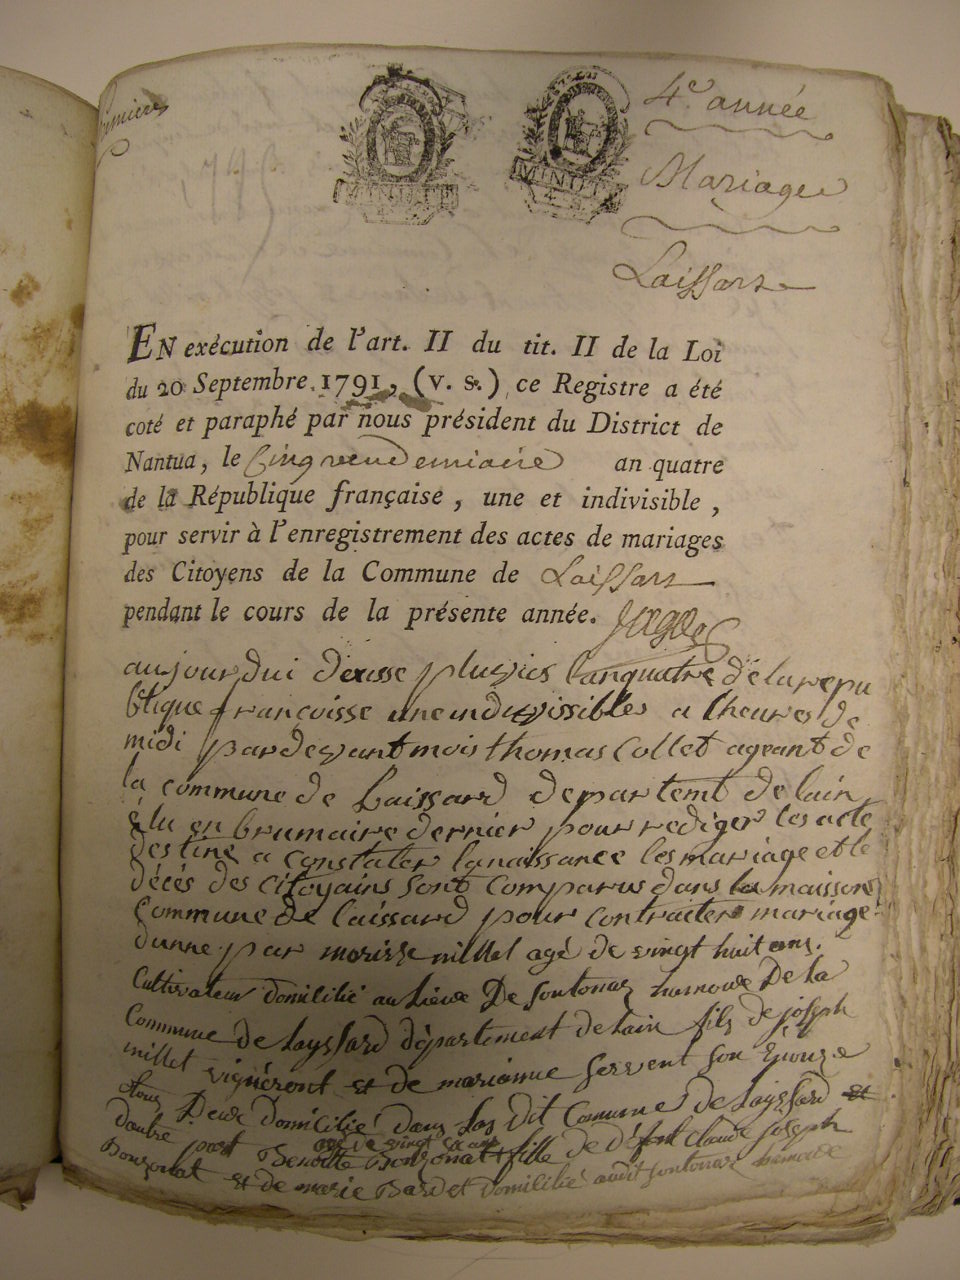 4e année
MINUTE
MINUTE
Mariage
Laissard
EN exécution de l'art. II du tit. II de la Loi
du 20 Septembre 1791, (v. s.) ce Registre a été
coté et paraphé par nous président du District de
Nantua, le Cinq vendemiaire an quatre
de la République française, une et indivisible,
pour servir à l'enregistrement des actes de mariages
des Citoyens de la Commune de Laissard
pendant le cours de la présente année.
aujourdui pluvios lanquatre de la repu
blique francoisse une indivissibles a lheures de
midi pardevant mois thomas Collet ageant de
la commune de Laissard departemt de lain
élu en brumaire dernier pour rediger les acte
destiné a constater la naissance les mariage et le
décés des citoyains sont comparus dans la maisson
Commune de laissard pour contracter mariage
dunne par morisse millet agé de vingt huit ans
Cultivateur domicilié au De la
Commune de Layssard département de lain fils de joseph
millet vigneront et de marianne servent son Epouze
tous Deux domicilié dans Dit Comune de Layssard et
dautre part Benoitte Bonzonat fille de défont Claude joseph
agé de vingt ans
Bonzonat et de marie Bard et domicilié audit